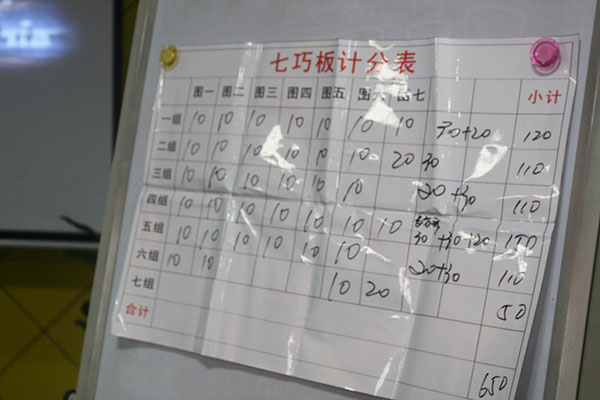 七巧板计分表
图一 图二 图三 图四 图五 图六 图七 小计
一组 10 10 10 10 10 10 10 +20 120
二组 10 10 10 10 10 10 20 30 110
三组 10 10 10 10 10 10 20 +30 110
四组 10 10 10 10 10 10 10 30 +30 +20
五组 10 10 10 10 10 10 20+30 110
六组 10 10 10 20 50
七组
合计 650